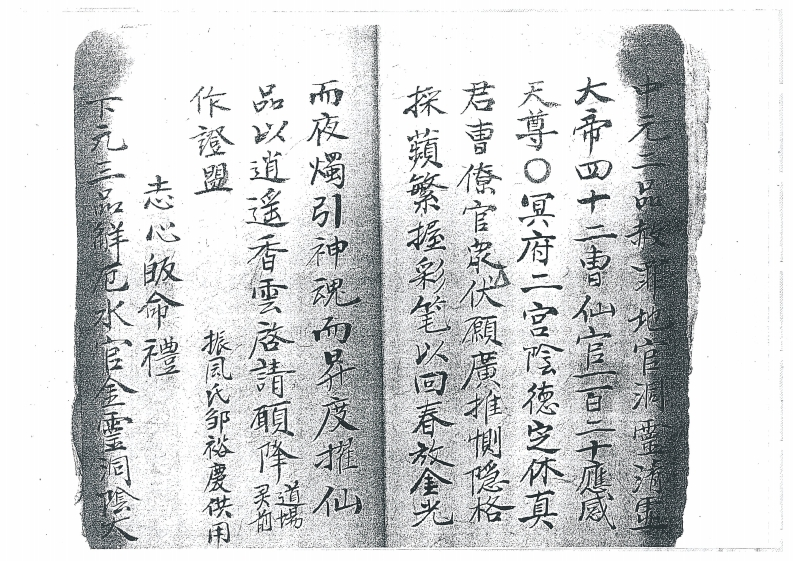 中元二品赦罪地官洞靈清虛
大帝四十二曹仙官一百二十應感
天尊〇冥府二宮陰德定休真
君曹僚官眾伏願廣推惻隱格
採蘋繁握彩笔以回春放金光
而夜燭引神魂而昇度擢仙
品以逍遙香雲啓請願降道場
灵前
作證盟
振凬氏邹裕慶供用
志心皈命禮
下元三品解厄水官金靈洞陰大